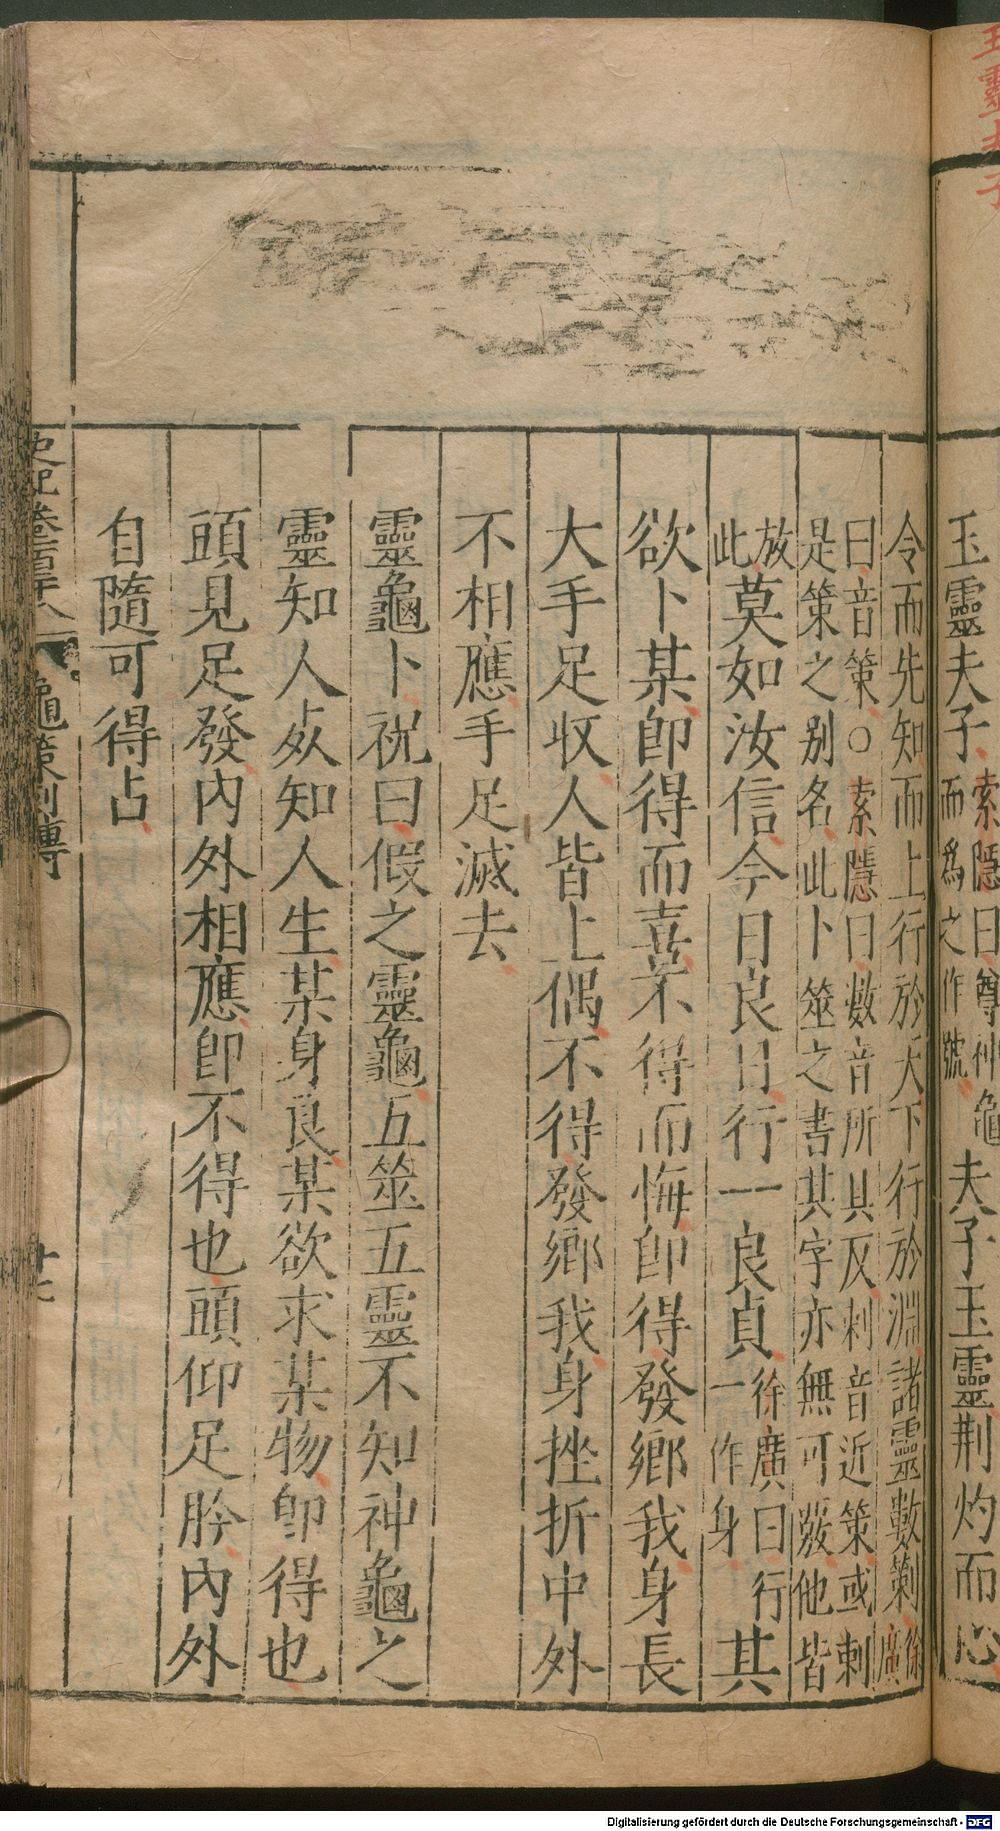 玉靈夫子
玉靈夫子索隱曰尊神龜而爲之作號夫子玉靈荆灼而心
令而先知而上行於天下行於淵諸靈數𥳽徐廣
曰音策○索隱曰數音所具反刺音近策或刺
是策之别名此卜筮之書其字亦無可覈他皆
放此莫如汝信今日良日行一良貞徐廣曰行一作身其
欲卜某卽得而喜不得而悔卽得發鄉我身長
大手足收人皆上偶不得發鄉我身挫折中外
不相應手足滅去
靈龜卜祝曰假之靈龜五筮五靈不知神龜之
靈知人死知人生某身良貞某欲求某物卽得也
頭見足發內外相應卽不得也頭仰足肣內外
自隨可得占
史記卷一百二十八 龜策列傳 十七
Digitalisierung gefördert durch die Deutsche Forschungsgemeinschaft - DFG